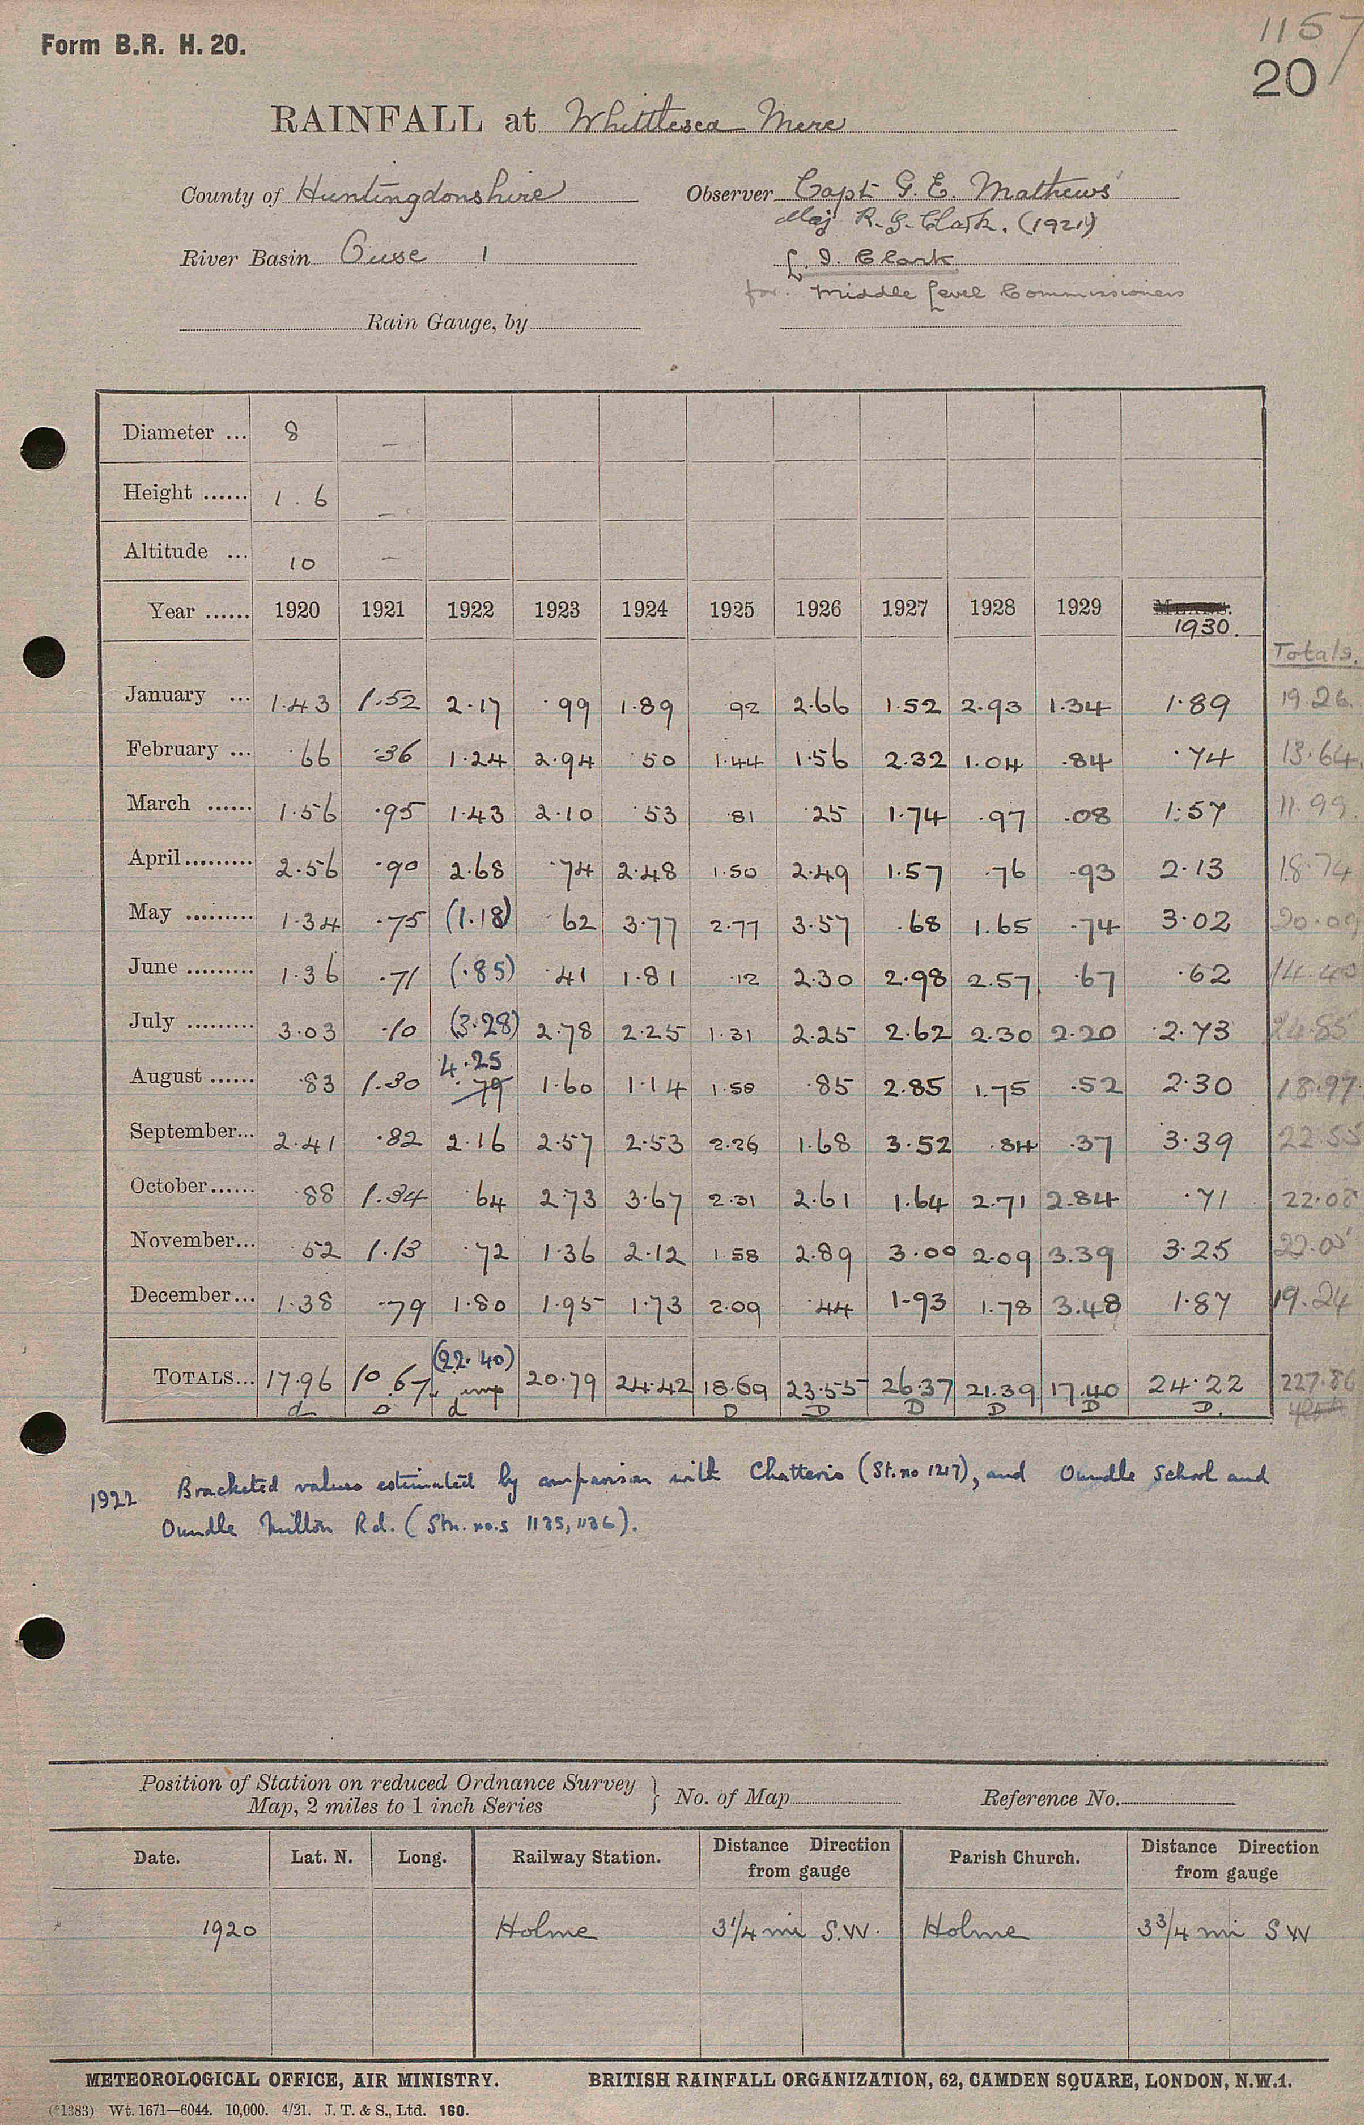 Form B.R. H. 20.
1157
20
RAINFALL at Whittlesea Mere
County of Huntingdonshire Observer Capt G. E. Mathews
Maj R. G. Clark. (1921)
River Basin Ouse 1 L. I. Clark
for Middle Level Commissioners
Rain Gauge, by
Diameter ... 8 —
Height ...... 1 . 6 —
Altitude ... 10 —
Year ...... 1920 1921 1922 1923 1924 1925 1926 1927 1928 1929 1930.
Totals.
January ... 1.43 1.52 2.17 .99 1.89 92 2.66 1.52 2.93 1.34 1.89 19.26
February ... .66 .36 1.24 2.94 50 1.44 1.56 2.32 1.04 .84 .74 13.64
March ...... 1.56 .95 1.43 2.10 53 81 .25 1.74 .97 .08 1.57 11.99
April......... 2.56 .90 2.68 .74 2.48 1.50 2.49 1.57 .76 .93 2.13 18.74
May ......... 1.34 .75 (1.18) 62 3.77 2.77 3.57 .68 1.65 .74 3.02 20.09
June ......... 1.36 .71 (.85) .41 1.81 .12 2.30 2.98 2.57 .67 .62 14.40
July ......... 3.03 .10 (3.28) 2.78 2.25 1.31 2.25 2.62 2.30 2.20 2.73 24.85
4.25
August ...... .83 1.30 .79 1.60 1.14 1.58 .85 2.85 1.75 .52 2.30 18.97
September... 2.41 .82 2.16 2.57 2.53 2.26 1.68 3.52 .84 .37 3.39 22.55
October...... .88 1.34 .64 2.73 3.67 2.31 2.61 1.64 2.71 2.84 .71 22.08
November... .52 1.13 .72 1.36 2.12 1.58 2.89 3.00 2.09 3.39 3.25 22.05
December... 1.38 .79 1.80 1.95 1.73 2.09 .44 1.93 1.78 3.48 1.87 19.24
(22.40)
TOTALS... 17.96 10.67 imp 20.79 24.42 18.69 23.55 26.37 21.39 17.40 24.22 227.86
d D d D D D D D D.
1922 Bracketed values estimated by comparison with Chatteris (St. no 1217), and Oundle School and
Oundle Milton Rd. (Stn. no.s 1135, 1136).
Position of Station on reduced Ordnance Survey
Map, 2 miles to 1 inch Series } No. of Map Reference No.
Date. Lat. N. Long. Railway Station. Distance Direction from gauge Parish Church. Distance Direction from gauge
1920 Holme 3 1/4 mi S.W. Holme 3 3/4 mi S W
METEOROLOGICAL OFFICE, AIR MINISTRY. BRITISH RAINFALL ORGANIZATION, 62, CAMDEN SQUARE, LONDON, N.W.1.
(*1383) Wt. 1671—6044. 10,000. 4/21. J. T. & S., Ltd. 160.